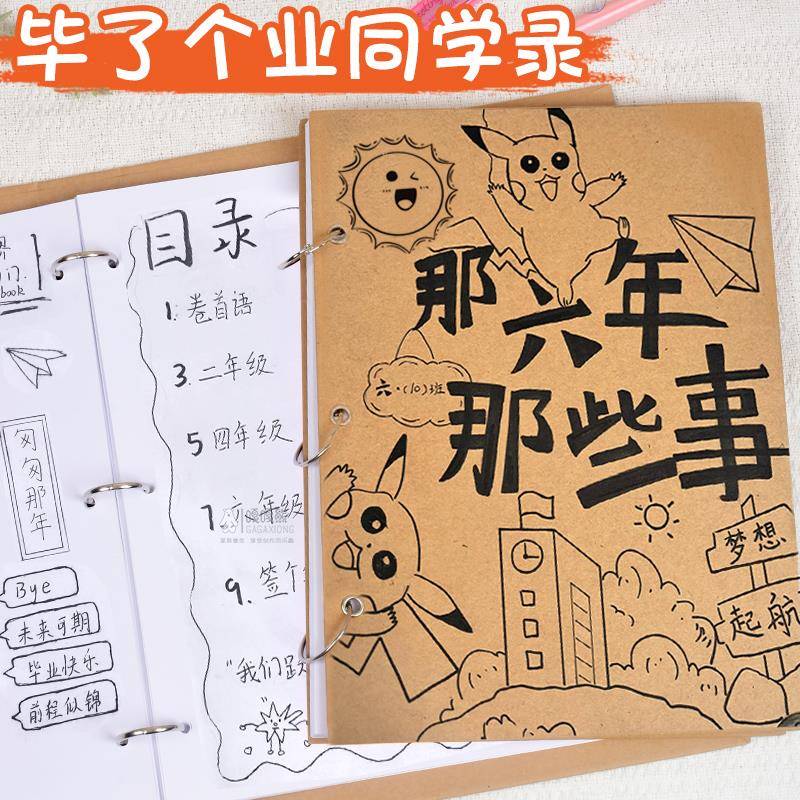 毕了个业同学录
那六年
那些事
六·(10)班
梦想
起航
目录
1. 卷首语
3. 二年级
5 四年级
7 六年级
9. 签个
"我们
book
匆匆那年
Bye
未来可期
毕业快乐
前程似锦
嘎嘎熊
GAGAXIONG